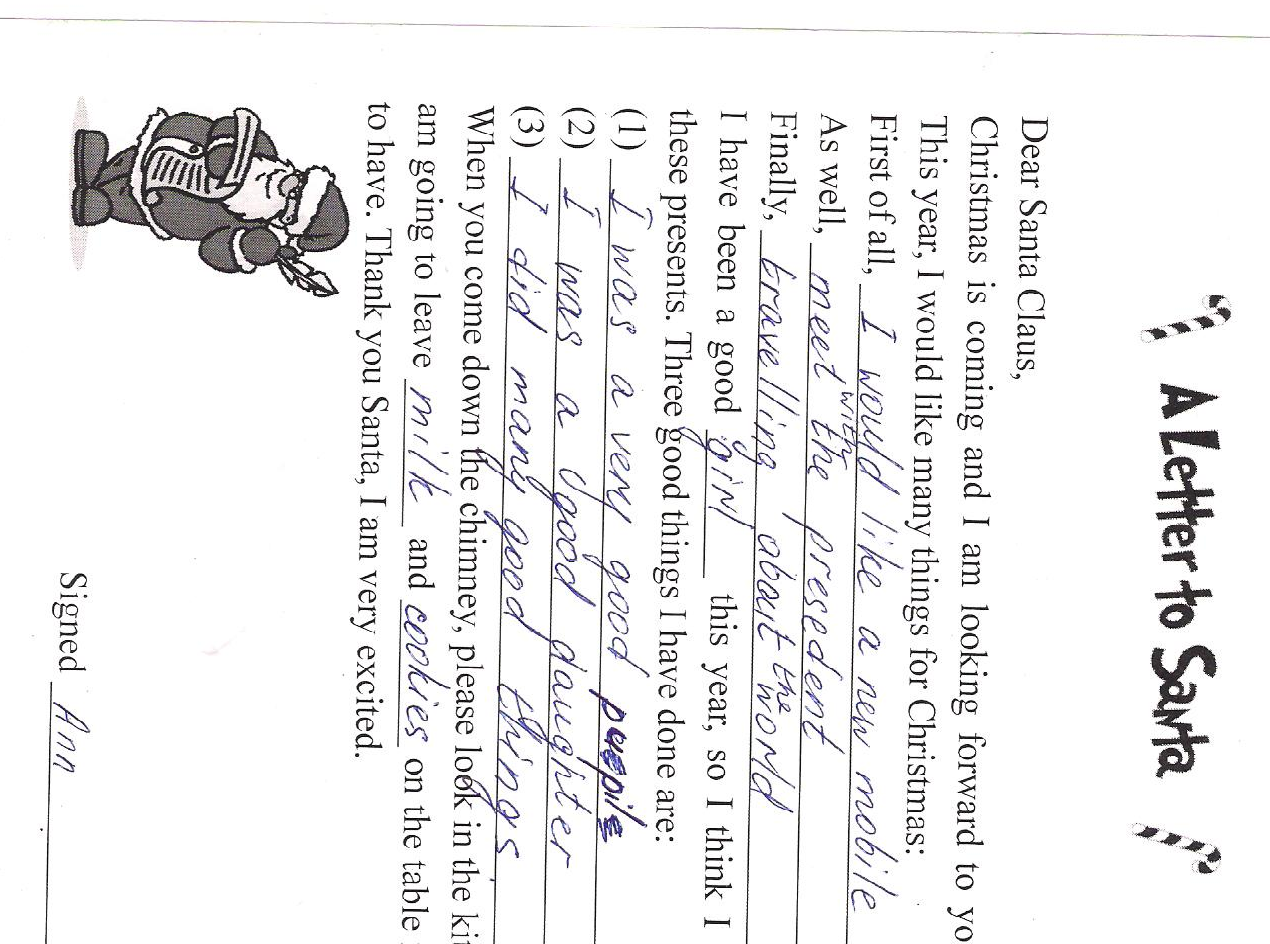 A Letter to Santa
Dear Santa Claus,
Christmas is coming and I am looking forward to yo
This year, I would like many things for Christmas:
First of all, I would like a new mobile
As well, meet with the presedent
Finally, travelling about the world
I have been a good girl this year, so I think I
these presents. Three good things I have done are:
(1) I was a very good pupil
(2) I was a good daughter
(3) I did many good things
When you come down the chimney, please look in the kit
am going to leave milk and cookies on the table
to have. Thank you Santa, I am very excited.
Signed Ann